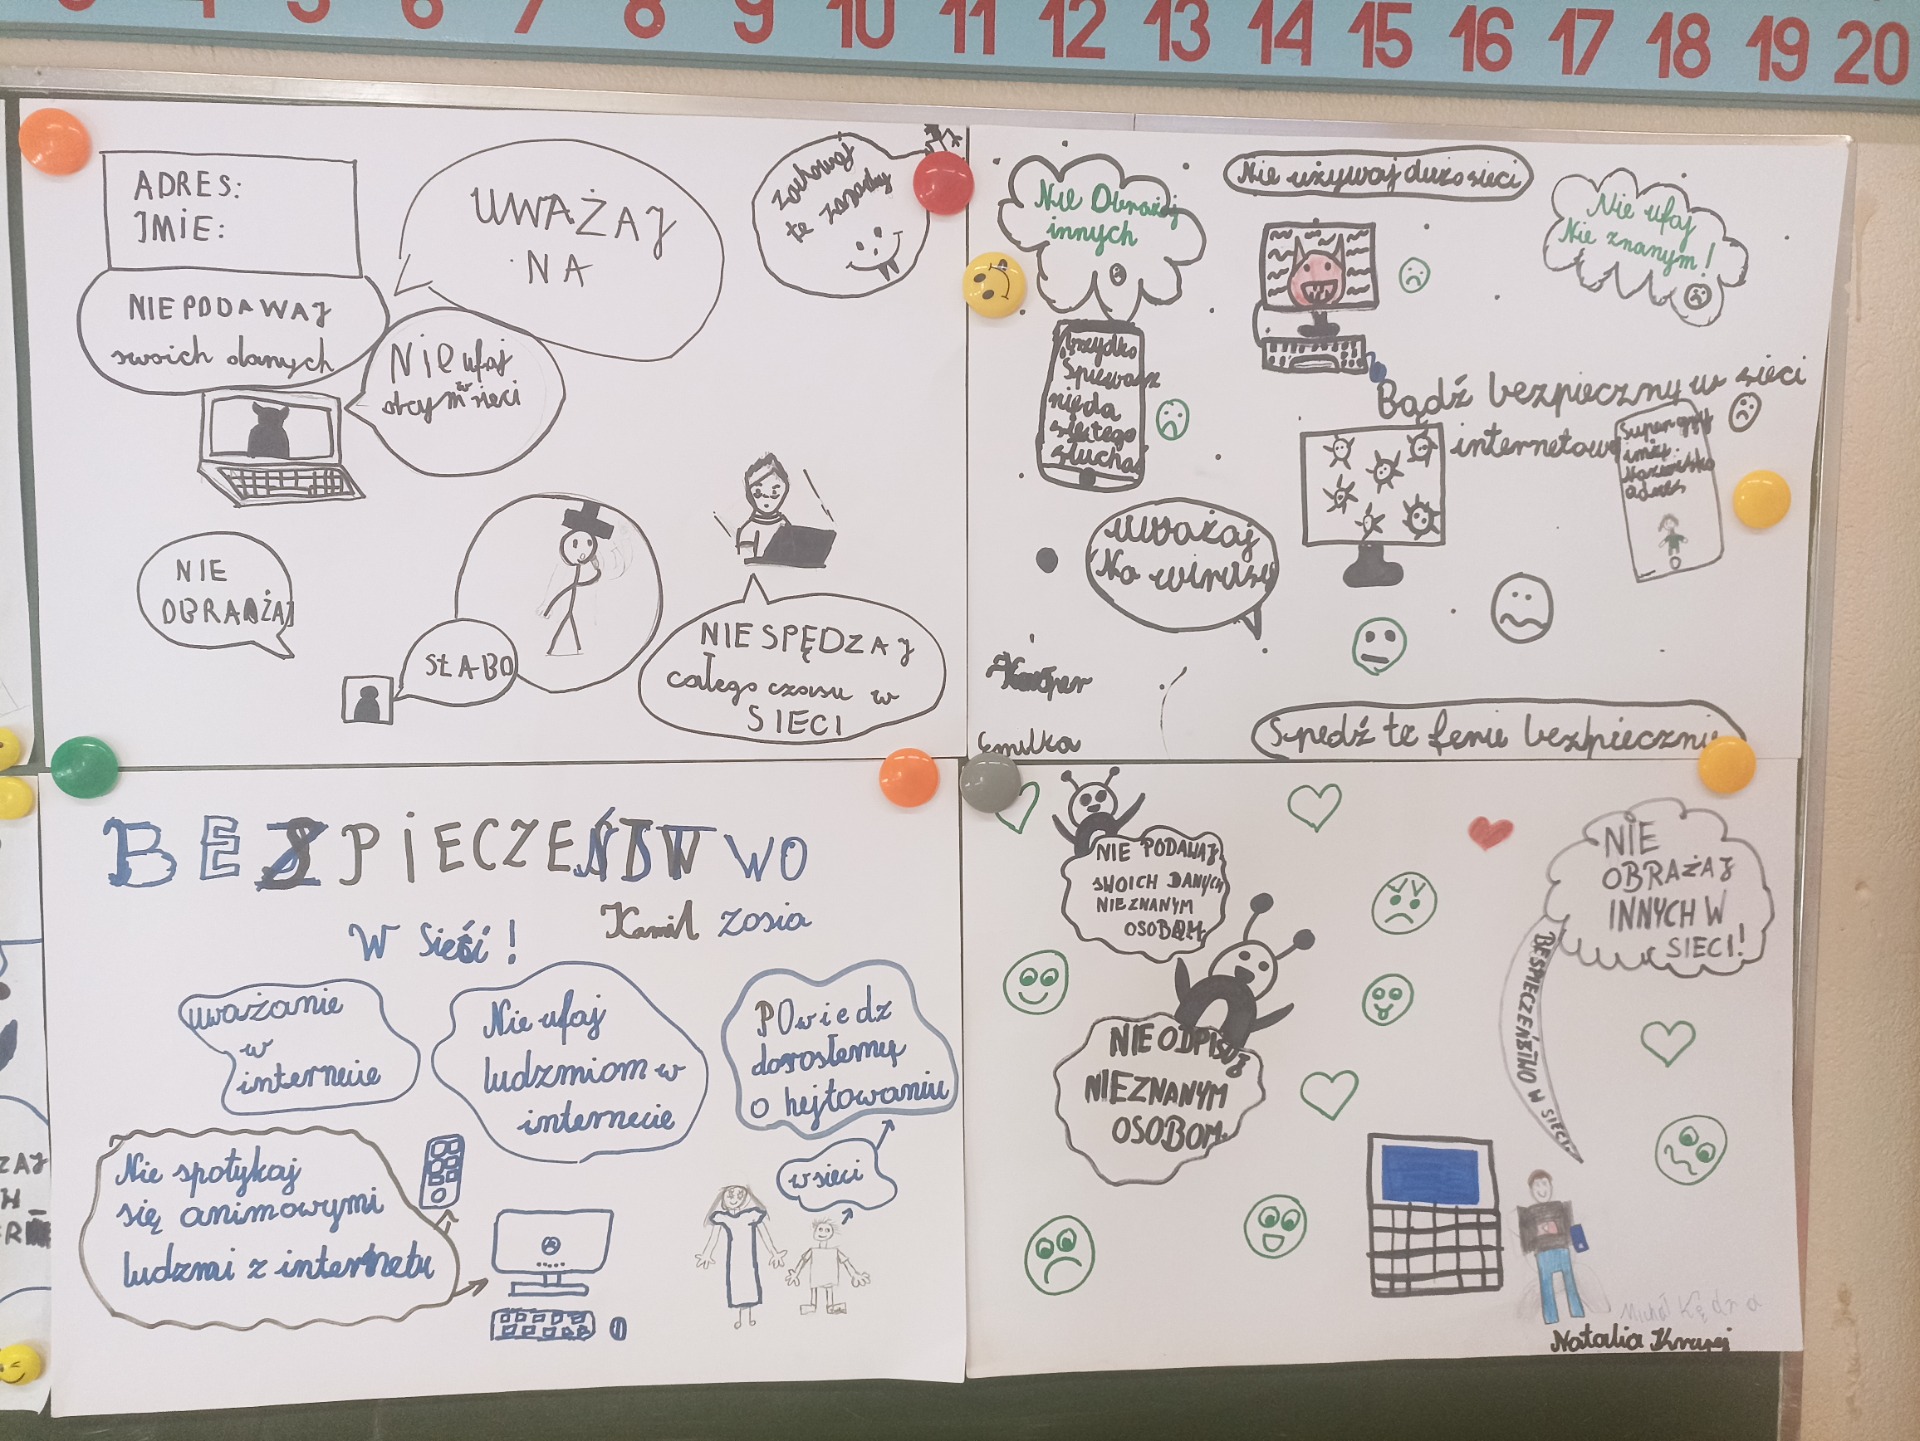 8 9 10 11 12 13 14 15 16 17 18 19 20
ADRES:
IMIE:
NIE PODAWAJ
swoich danych
UWAŻAJ
NA
Zachowaj
te zasady
Nie ufaj
obcym w sieci
NIE
OBRAŻAJ
SŁABO
NIE SPĘDZAJ
całego czasu w
SIECI
Nie Obrażaj
innych
Nie używaj dużo sieci
Nie ufaj
Nie znanym!
Brzydko
Śpiewasz
nię da
się tego
słuchać
Bądź bezpieczny w sieci
internetowej
Super gry
imię:
Nazwisko
adres
uważaj
Na wirusy
Kacper
Emilka
Spędź te ferie bezpiecznie
BEZPIECZEŃSTWO
W Sieci!
Kamil Zosia
uważanie
w
internecie
Nie ufaj
ludzmiom w
internecie
POwiedz
dorosłemu
o hejtowaniu
w sieci
Nie spotykaj
się animowymi
ludzmi z internetu
NIE PODAWAJ
SWOICH DANYCH
NIEZNANYM
OSOBĄM
NIE ODPISUJ
NIEZNANYM
OSOBOM.
NIE
OBRAŻAJ
INNYCH W
SIECI!
BESPIECZEŃSTWO W SIECI
Michał Kędra
Natalia